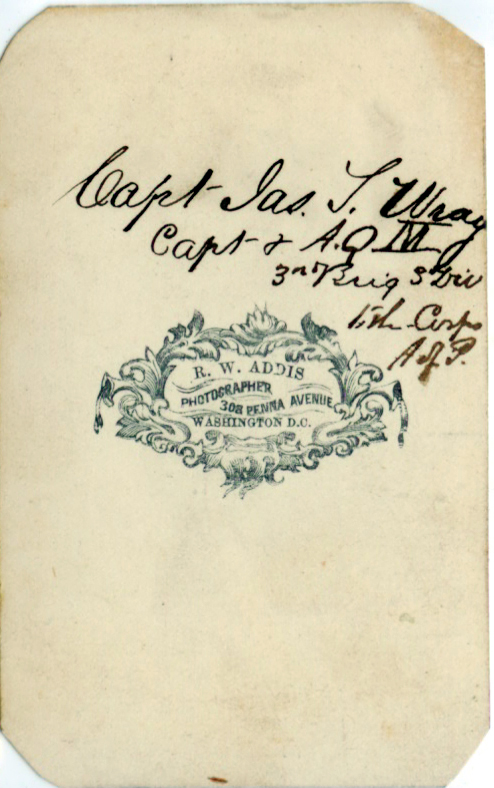 Capt Jas. T. Wray
Capt & A.Q.M
3rd Brig 3d Div
5th Corps
A of P.
R. W. ADDIS
PHOTOGRAPHER
308 PENNA AVENUE
WASHINGTON D.C.